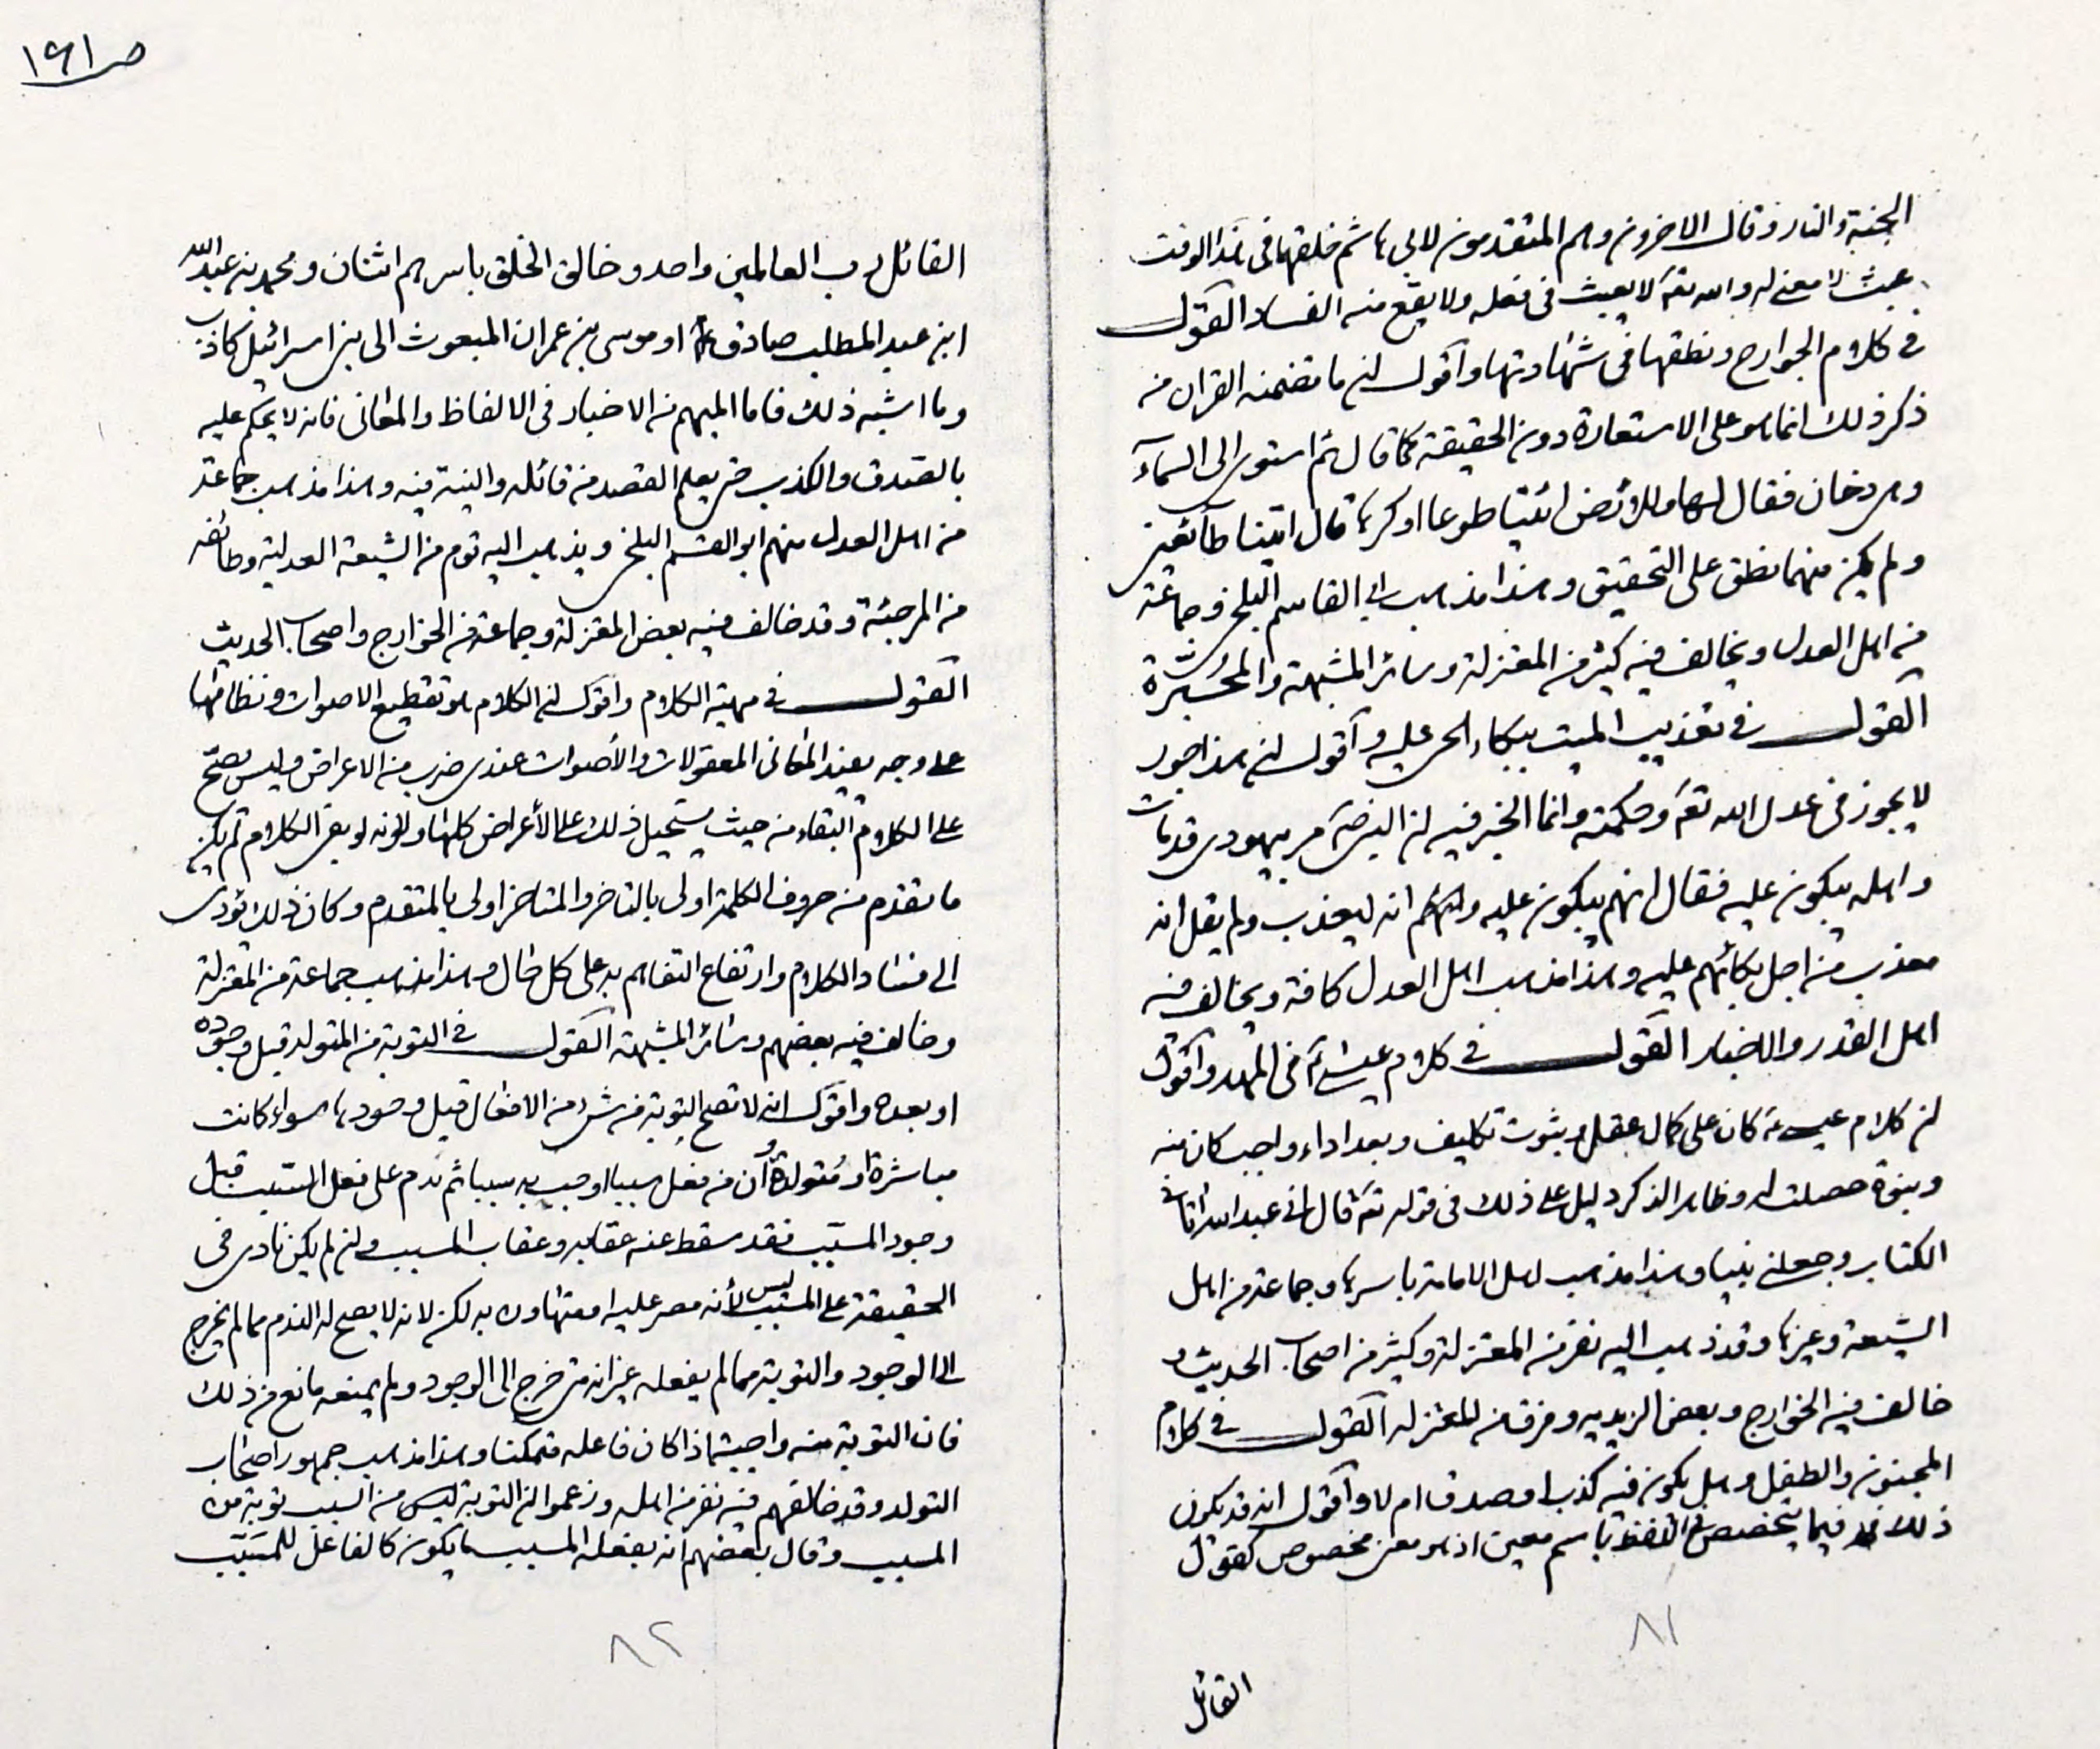 الجنة والنار وقال الاخرون وهم المتقدمون لابى هاشم خلقهما فى هذا الوقت
عبث لا معنى له والله تعه لا يعبث فى فعله ولا يقع منه الفساد القول
فى كلام الجوارح ونطقها فى شهادتها واقول ان ما تضمنه القران من
ذكر ذلك انما هو على الاستعارة دون الحقيقة كما قال ثم استوى الى السمآء
وهى دخان فقال لها وللارض ائتيا طوعا او كرها قال اتينا طائعين
ولم يكن منهما نطق على التحقيق وهذا مذهب ابى القاسم البلخى وجماعة
من اهل العدل ويخالف فيه كثير من المعتزلة وسائر المشبهة والمجبرة
القول فى تعذيب الميت ببكاء الحى عليه واقول ان هذا جور
لا يجوز فى عدل الله تعه وحكمته وانما الخبر فيه ان النبى صه مر بيهودى قد مات
واهله يبكون عليه فقال انهم يبكون عليه وانه ليعذب ولم يقل انه
معذب من اجل بكائهم عليه وهذا مذهب اهل العدل كافة ويخالف فيه
اهل القدر والاخبار القول فى كلام عيسى ع فى المهد واقول
ان كلام عيسى ع كان على كمال عقل وثبوت تكليف وبعد اداء واجب كان منه
ونبوة حصلت له وظاهر الذكر دليل على ذلك فى قوله تعه قال انى عبد الله اتانى
الكتاب وجعلنى نبيا وهذا مذهب اهل الامامة باسرها وجماعة من اهل
الشيعة وغيرها وقد ذهب اليه نفر من المعتزلة وكثير من اصحاب الحديث و
خالف فيه الخوارج وبعض الزيديه وفرق من المعتزله القول فى كلام
المجنون والطفل وهل يكون فيه كذب او صدق ام لا واقول انه قد يكون
ذلك فيما يتخصص من اللفظ باسم معين او هو معنى مخصوص كقول
٨١
القائل
ص١٦١
القائل رب العالمين واحد وخالق الخلق باسرهم اثنان ومحمد بن عبد الله
ابن عبد المطلب صادق او موسى بن عمران المبعوث الى بنى اسرائيل كاذب
وما اشبه ذلك فاما المبهم من الاخبار فى الالفاظ والمعانى فانه لا يحكم عليه
بالصدق والكذب حتى يعلم القصد من قائله والنية فيه وهذا مذهب جماعة
من اهل العدل منهم ابو القسم البلخى ويذهب اليه قوم من الشيعة العدلية وطائفه
من المرجئة وقد خالف فيه بعض المعتزلة وجماعة من الخوارج واصحاب الحديث
القول فى مهية الكلام واقول ان الكلام هو تقطيع الاصوات ونظامها
على وجه يفيد المعانى المعقولات والأصوات عندى ضرب من الاعراض وليس يصح
على الكلام البقاء من حيث يستحيل ذلك على الأعراض كلها ولانه لو بقى الكلام لم يكن
ما تقدم من حروف الكلمة اولى بالتاخر والمتاخر اولى بالمتقدم وكان ذلك يؤدى
الى فساد الكلام وارتفاع التفاهم به على كل حال وهذا مذهب جماعة من المعتزلة
وخالف فيه بعضهم وسائر المشبهة القول فى التوبة من المتولد قبل وجوده
او بعده واقول انه لا تصح التوبة من شىء من الافعال قبل وجودها سواء كانت
مباشرة او متولدة وان من فعل سببا اوجب به سببا ثم ندم على فعل السبب قبل
وجود المسبب فقد سقط عنه عقابه وعقاب المسبب وان لم يكن نادى فى
الحقيقة على المسبب ليس لأنه مصر عليه او متهاون به لكن لانه لا يصح له الندم مما لم يخرج
الى الوجود والتوبة مما لم يفعله غير انه متى خرج الى الوجود ولم يمنعه مانع من ذلك
فان التوبة منه واجبة اذا كان فاعله متمكنا وهذا مذهب جمهور اصحاب
التولد وقد خالفهم فيه نفر من اهله وزعموا ان التوبة ليس من السبب توبة من
المسبب وقال بعضهم انه بفعله المسبب يكون كالفاعل للمسبب
٨٢